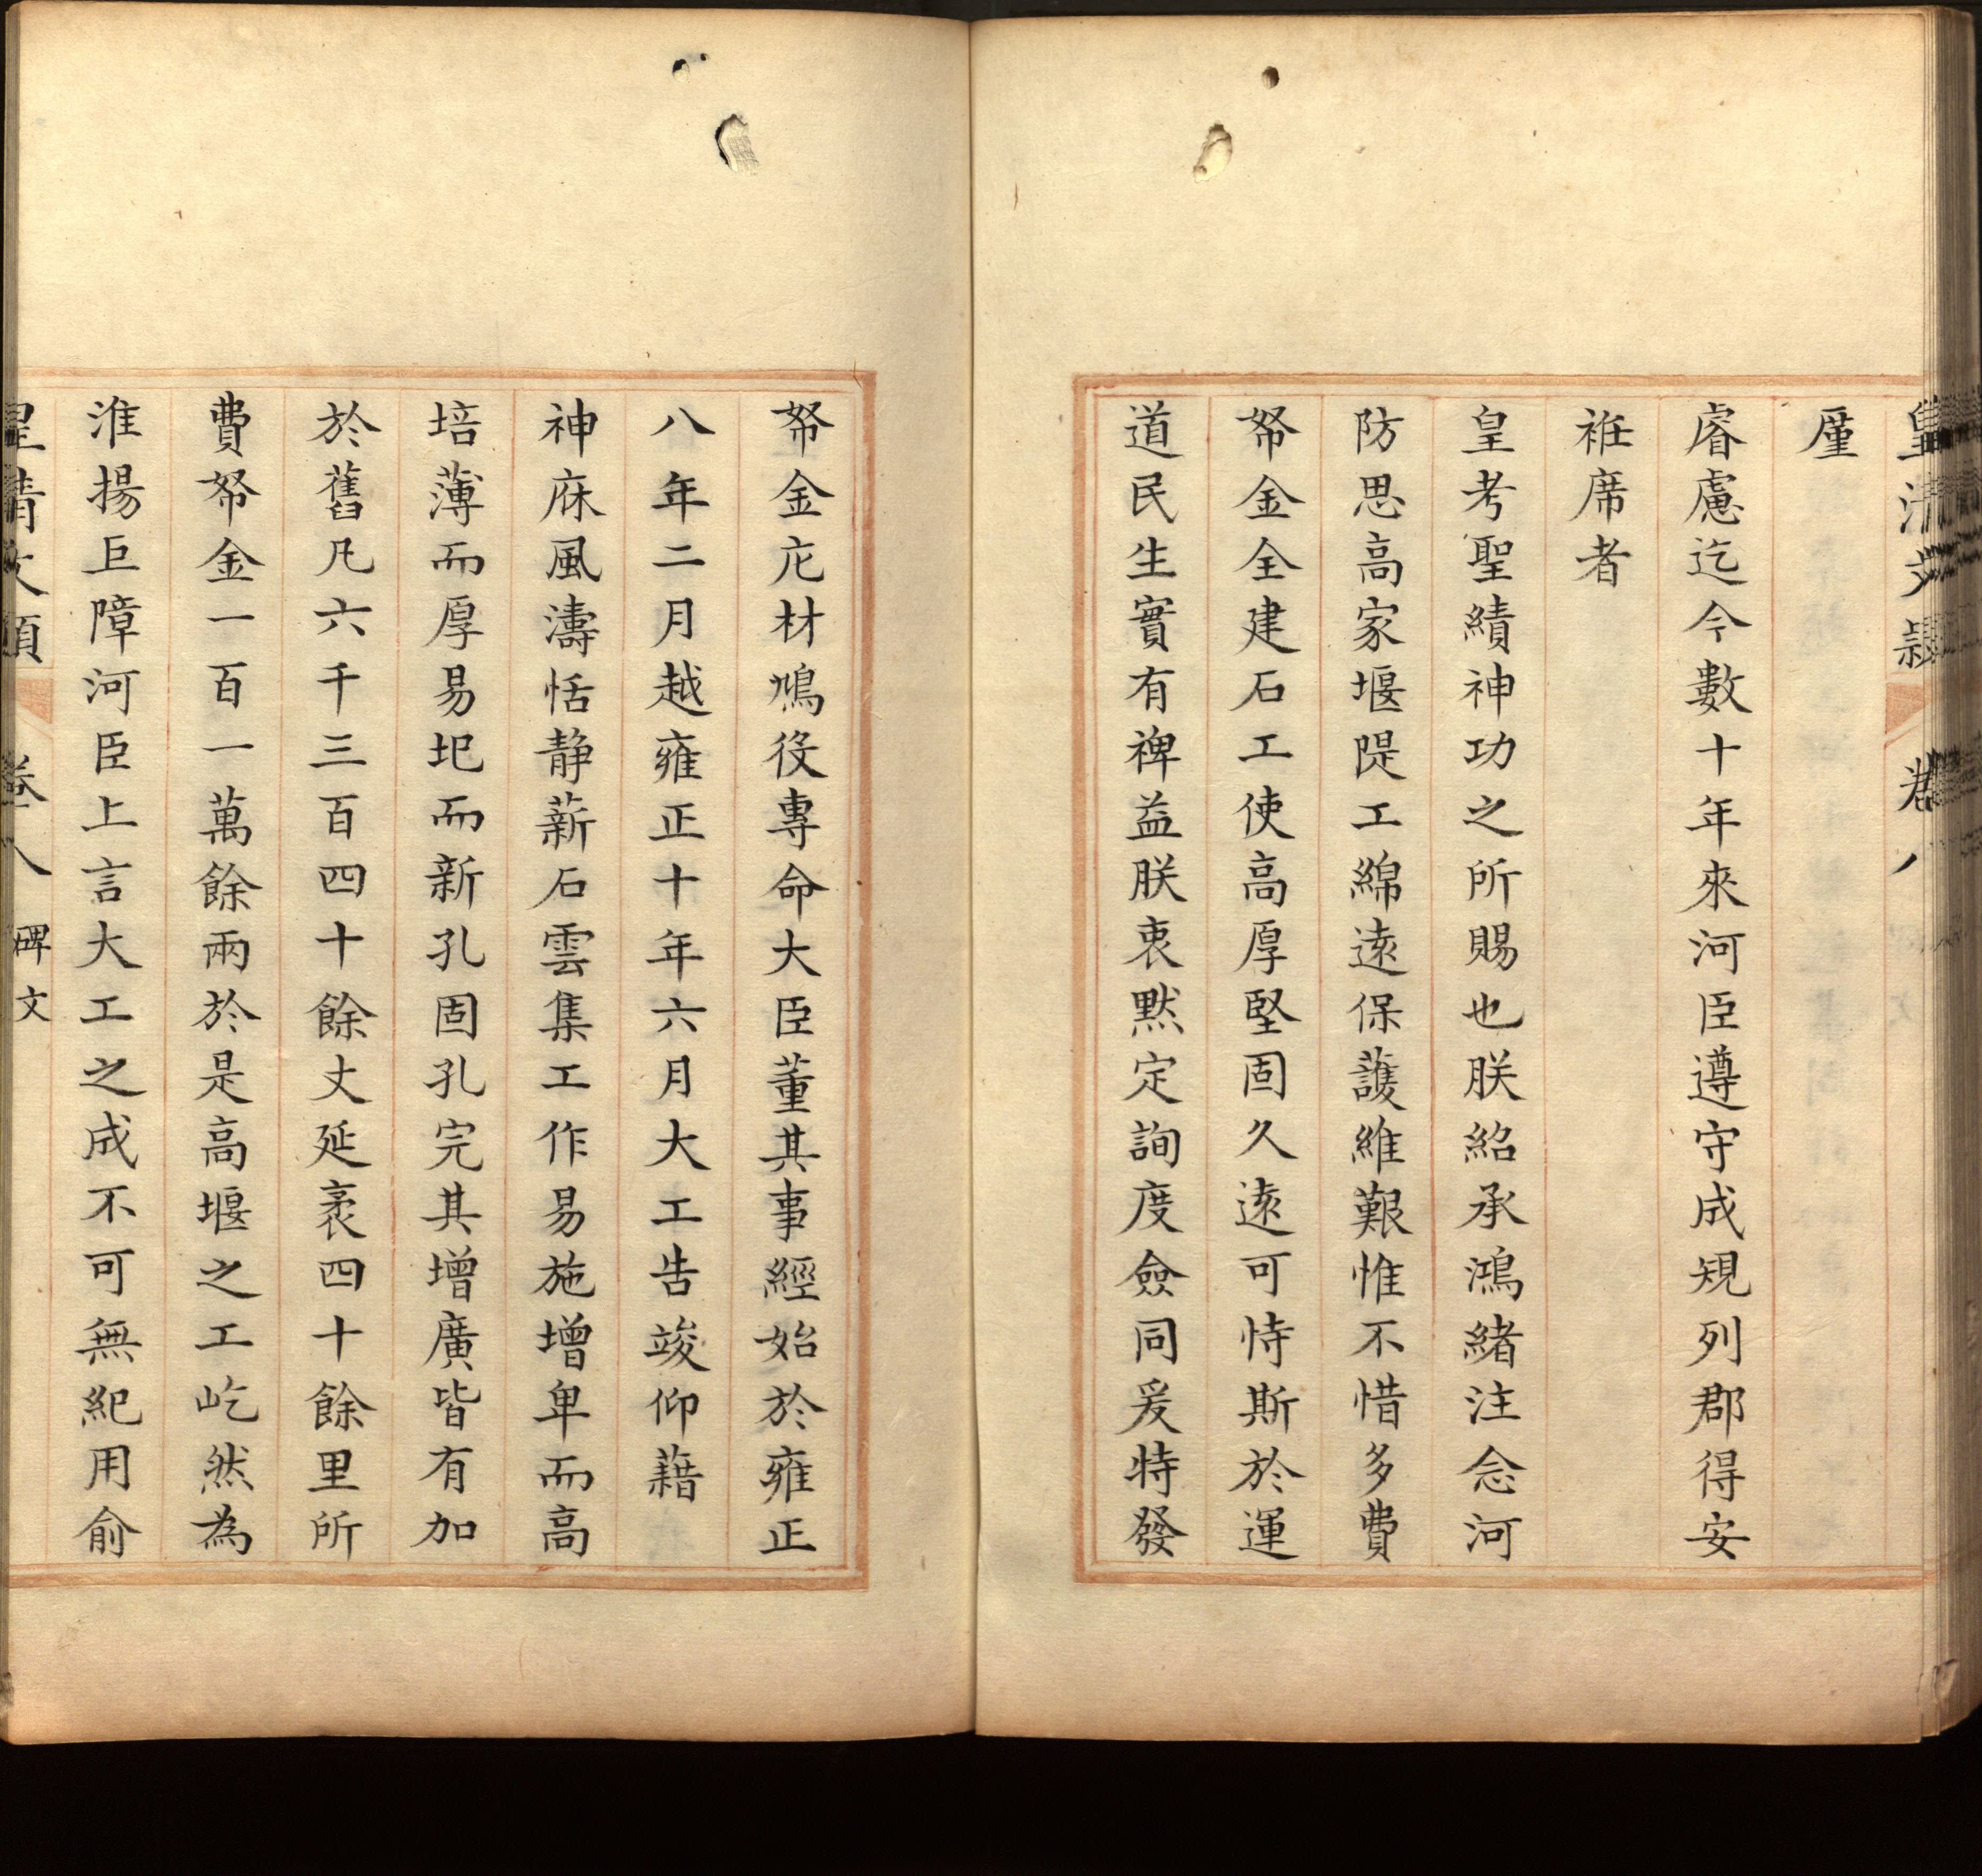 皇清文穎 卷八
廑
睿慮迄今數十年來河臣遵守成規列郡得安
袵席者
皇考聖績神功之所賜也朕紹承鴻緒注念河
防思高家堰隄工綿遠保護維艱惟不惜多費
帑金全建石工使高厚堅固久遠可恃斯於運
道民生實有裨益朕衷默定詢度僉同爰特發
帑金庀材鳩役專命大臣董其事經始於雍正
八年二月越雍正十年六月大工告竣仰藉
神庥風濤恬静薪石雲集工作易施增卑而高
培薄而厚易圯而新孔固孔完其增廣皆有加
於舊凡六千三百四十餘丈延袤四十餘里所
費帑金一百一萬餘兩於是高堰之工屹然為
淮揚巨障河臣上言大工之成不可無紀用俞
皇清文穎 卷八 碑文